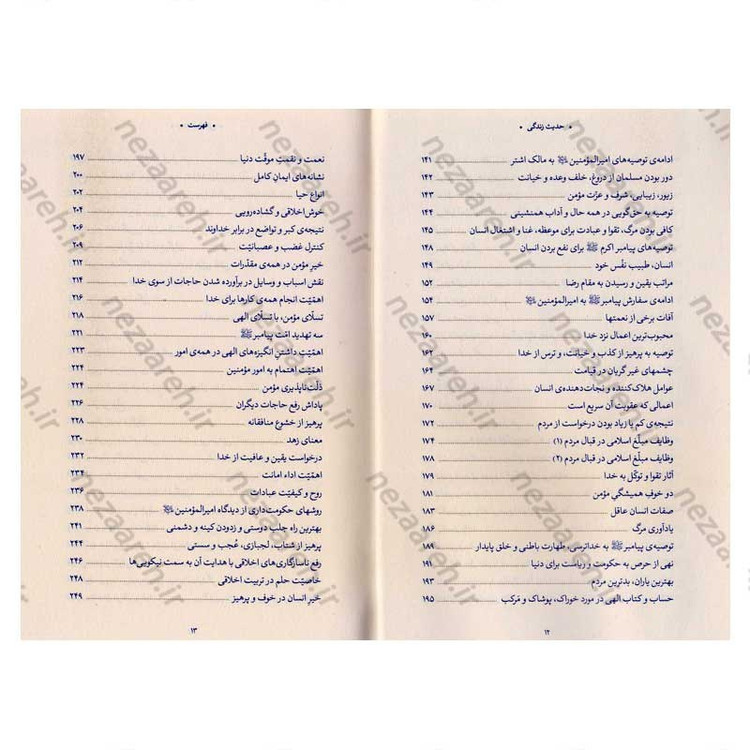 • حدیث زندگی •
ادامه‌ی توصیه‌های امیرالمؤمنین ﷺ به مالک اشتر ۱۴۱
دور بودن مسلمان از دروغ، خلف وعده و خیانت ۱۴۲
زیور، زیبایی، شرف و عزّت مؤمن ۱۴۳
توصیه به حق‌گویی در همه حال و آداب همنشینی ۱۴۴
کافی بودن مرگ، تقوا و عبادت برای موعظه، غنا و اشتغال انسان ۱۴۵
توصیه‌های پیامبر اکرم ﷺ برای نفع بردن انسان ۱۴۸
انسان، طبیب نفْس خود ۱۴۹
مراتب یقین و رسیدن به مقام رضا ۱۵۲
ادامه‌ی سفارش پیامبر ﷺ به امیرالمؤمنین ﷺ ۱۵۴
آفات برخی از نعمتها ۱۵۷
محبوب‌ترین اعمال نزد خدا ۱۶۰
توصیه به پرهیز از کذب و خیانت، و ترس از خدا ۱۶۲
چشمهای غیر گریان در قیامت ۱۶۴
عوامل هلاک‌کننده و نجات‌دهنده‌ی انسان ۱۶۷
اعمالی که عقوبت آن سریع است ۱۷۰
نتیجه‌ی کم یا زیاد بودن درخواست از مردم ۱۷۲
وظایف مبلّغ اسلامی در قبال مردم (۱) ۱۷۴
وظایف مبلّغ اسلامی در قبال مردم (۲) ۱۷۸
آثار تقوا و توکّل به خدا ۱۷۹
دو خوف همیشگیِ مؤمن ۱۸۱
صفات انسان عاقل ۱۸۳
یادآوری مرگ ۱۸۶
توصیه‌ی پیامبر ﷺ به خداترسی، طهارت باطنی و خلق پایدار ۱۸۹
نهی از حرص به حکومت و ریاست برای دنیا ۱۹۱
بهترین یاران، بدترین مردم ۱۹۳
حساب و کتاب الهی در مورد خوراک، پوشاک و مَرکب ۱۹۵
۱۲
• فهرست •
نعمت و نقمتِ موقّت دنیا ۱۹۷
نشانه‌های ایمانِ کامل ۲۰۰
انواع حیا ۲۰۲
خوش‌اخلاقی و گشاده‌رویی ۲۰۴
نتیجه‌ی کبر و تواضع در برابر خداوند ۲۰۶
کنترل غضب و عصبانیّت ۲۰۹
خیرِ مؤمن در همه‌ی مقدّرات ۲۱۲
نقش اسباب و وسایل در برآورده شدن حاجات از سوی خدا ۲۱۴
اهمّیّت انجام همه‌ی کارها برای خدا ۲۱۶
تسلّای مؤمن، با تسلّای الهی ۲۱۸
سه تهدید امّت پیامبر ﷺ ۲۲۱
اهمّیّت داشتنِ انگیزه‌های الهی در همه‌ی امور ۲۲۳
اهمّیّت اهتمام به امور مؤمنین ۲۲۴
ذلّت‌ناپذیری مؤمن ۲۲۴
پاداش رفع حاجات دیگران ۲۲۶
پرهیز از خشوع منافقانه ۲۲۸
معنای زهد ۲۳۰
درخواست یقین و عافیت از خدا ۲۳۲
اهمّیّت اداء امانت ۲۳۴
روح و کیفیّت عبادات ۲۳۶
روشهای حکومت‌داری از دیدگاه امیرالمؤمنین ﷺ ۲۳۸
بهترین راه جلب دوستی و زدودن کینه و دشمنی ۲۴۱
پرهیز از شتاب، لجبازی، عُجب و سستی ۲۴۴
رفع ناسازگاری‌های اخلاقی با هدایت آن به سمت نیکویی‌ها ۲۴۶
خاصیّت حلم در تربیت اخلاقی ۲۴۸
خیر انسان در خوف و پرهیز ۲۴۹
۱۳
nezaareh.ir